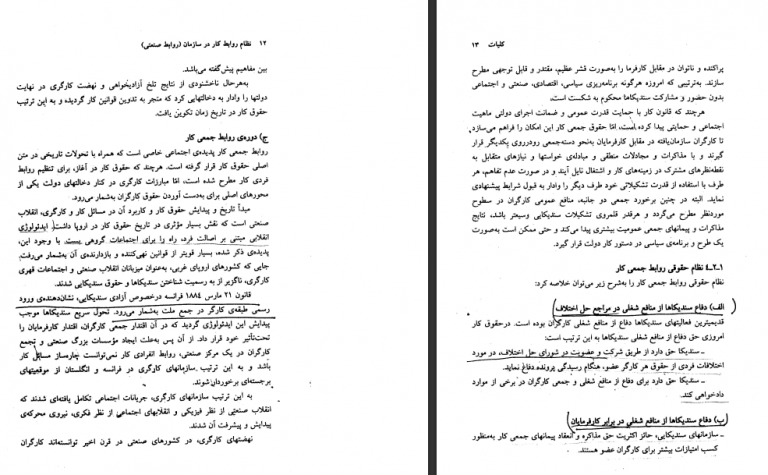 ۱۲ نظام روابط کار در سازمان (روابط صنعتی)
بین مفاهیم پیش‌گفته می‌باشد.
به‌هرحال ناخشنودی از نتایج تلخ آزادیخواهی و نهضت کارگری در نهایت
دولتها را وادار به دخالتهایی کرد که منجر به تدوین قوانین کار گردیده و به این ترتیب
حقوق کار در تاریخ زمان تکوین یافت.
ج) دوره‌ی روابط جمعی کار
روابط جمعی کار پدیده‌ی اجتماعی خاصی است که همراه با تحولات تاریخی در متن
اصلی حقوق کار قرار گرفته است. هرچند که حقوق کار در آغاز، برای تنظیم روابط
فردی کار مطرح شده است، امّا مبارزات کارگری در کنار دخالتهای دولت یکی از
محورهای اصلی برای به‌دست آوردن حقوق کارگران به‌شمار می‌رود.
مبدأ تاریخ و پیدایش حقوق کار و کاربرد آن در مسائل کار و کارگری، انقلاب
صنعتی است که نقش بسیار مؤثری در تاریخ حقوق کار در اروپا داشت. ایدئولوژی
انقلابی مبتنی بر اصالت فرد، راه را برای اجتماعات گروهی بست. با وجود این،
پدیده‌ی ذکر شده، بسیار قویتر از قوانین نهی‌کننده و بازدارنده‌ی آن به‌شمار می‌رفت.
جایی که کشورهای اروپای غربی، به‌عنوان میزبانان انقلاب صنعتی و اجتماعات قهری
کارگری، ناگزیر از به رسمیت شناختن سندیکاها و حقوق سندیکایی شدند.
قانون ۲۱ مارس ۱۸۸۴ فرانسه درخصوص آزادی سندیکایی، نشان‌دهنده‌ی ورود
رسمی طبقه‌ی کارگر در جمع ملت به‌شمار می‌رود. تحول سریع سندیکاها موجب
پیدایش این ایدئولوژی گردید که در آن اقتدار جمعی کارگران، اقتدار کارفرمایان را
تحت‌تأثیر خود قرار داد. از آن پس به‌علت ایجاد مؤسسات بزرگ صنعتی و تجمع
کارگران در یک مرکز صنعتی، روابط انفرادی کار نمی‌توانست چاره‌ساز مسائل کار
باشد و به این ترتیب سازمانهای کارگری در فرانسه و انگلستان از موقعیتهای
برجسته‌ای برخوردار شوند.
به این ترتیب سازمانهای کارگری، جریانات اجتماعی تکامل یافته‌ای شدند که
انقلاب صنعتی از نظر فیزیکی و انقلابهای اجتماعی از نظر فکری، نیروی محرکه‌ی
پیدایش و پیشرفت آن شدند.
نهضتهای کارگری، در کشورهای صنعتی در قرن اخیر توانسته‌اند کارگران
کلیات ۱۳
پراکنده و ناتوان در مقابل کارفرما را به‌صورت قشر عظیم، مقتدر و قابل توجهی مطرح
سازند. به‌ترتیبی که امروزه هرگونه برنامه‌ریزی سیاسی، اقتصادی، صنعتی و اجتماعی
بدون حضور و مشارکت سندیکاها محکوم به شکست است.
هرچند که قانون کار با حمایت قدرت عمومی و ضمانت اجرای دولتی ماهیت
اجتماعی و حمایتی پیدا کرده است، امّا حقوق جمعی کار این امکان را فراهم می‌سازد
تا کارگران سازمان‌یافته در مقابل کارفرمایان به‌نحو دسته‌جمعی رودرروی یکدیگر قرار
گیرند و با مذاکرات و مجادلات منطقی و مبادله‌ی خواستها و نیازهای متقابل به
نقطه‌نظرهای مشترک در زمینه‌های کار و اشتغال نایل آیند و در صورت عدم تفاهم، هر
طرف با استفاده از قدرت تشکیلاتی خود طرف دیگر را وادار به قبول شرایط پیشنهادی
نماید. البته در چنین برخورد جمعی دو جانبه، منافع عمومی کارگران در سطوح
موردنظر مطرح می‌گردد و هرقدر قلمروی تشکیلات سندیکایی وسیعتر باشد، نتایج
مذاکرات و پیمانهای جمعی عمومیت بیشتری پیدا می‌کند و حتی ممکن است به‌صورت
یک طرح و برنامه‌ی سیاسی در دستور کار دولت قرار گیرد.
۱-۲-۴ نظام حقوقی روابط جمعی کار
نظام حقوقی روابط جمعی کار را به‌شرح زیر می‌توان خلاصه کرد:
الف) دفاع سندیکاها از منافع شغلی در مراجع حل اختلاف
قدیمیترین فعالیتهای سندیکاها دفاع از منافع شغلی کارگران بوده است. درحقوق کار
امروزی حق دفاع از منافع شغلی سندیکاها به این ترتیب است:
ـ سندیکا حق دارد از طریق شرکت و عضویت در شورای حل اختلاف، در مورد
اختلافات فردی از حقوق هر کارگر عضو، هنگام رسیدگی پرونده دفاع نماید.
ـ سندیکا حق دارد برای دفاع از منافع شغلی و جمعی کارگران در برخی از موارد
دادخواهی کند.
ب) دفاع سندیکاها از منافع شغلی در برابر کارفرمایان
ـ سازمانهای سندیکایی، حائز اکثریت حق مذاکره و انعقاد پیمانهای جمعی کار به‌منظور
کسب امتیازات بیشتر برای کارگران عضو هستند.